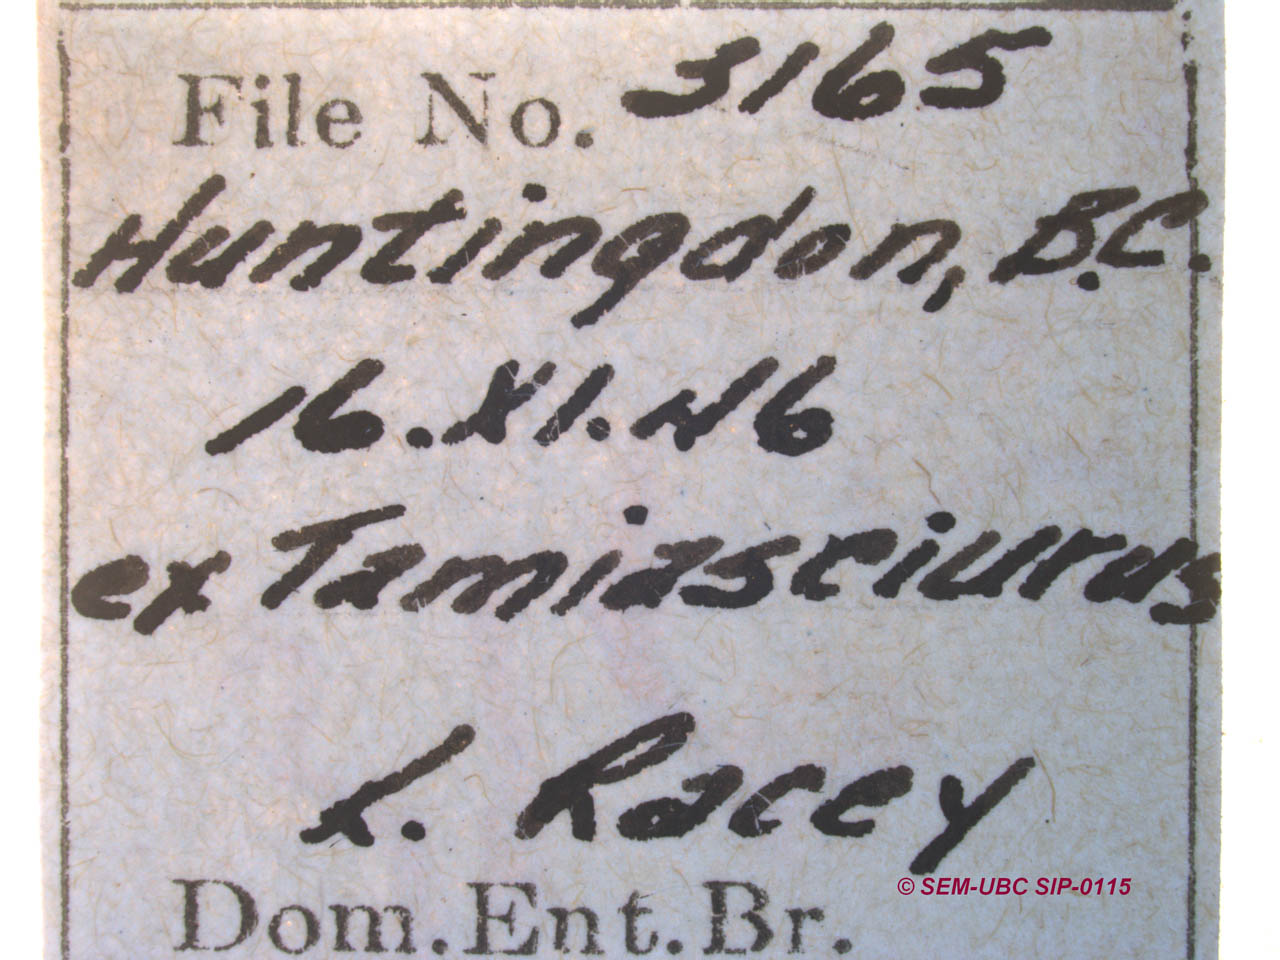 File No. 3165
Huntingdon, B.C.
16.XI.46
ex Tamiasciurus
L. Racey
© SEM-UBC SIP-0115
Dom.Ent.Br.